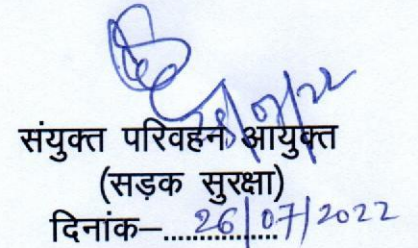 26/07/22
संयुक्त परिवहन आयुक्त
(सड़क सुरक्षा)
दिनांक–..........26/07/2022